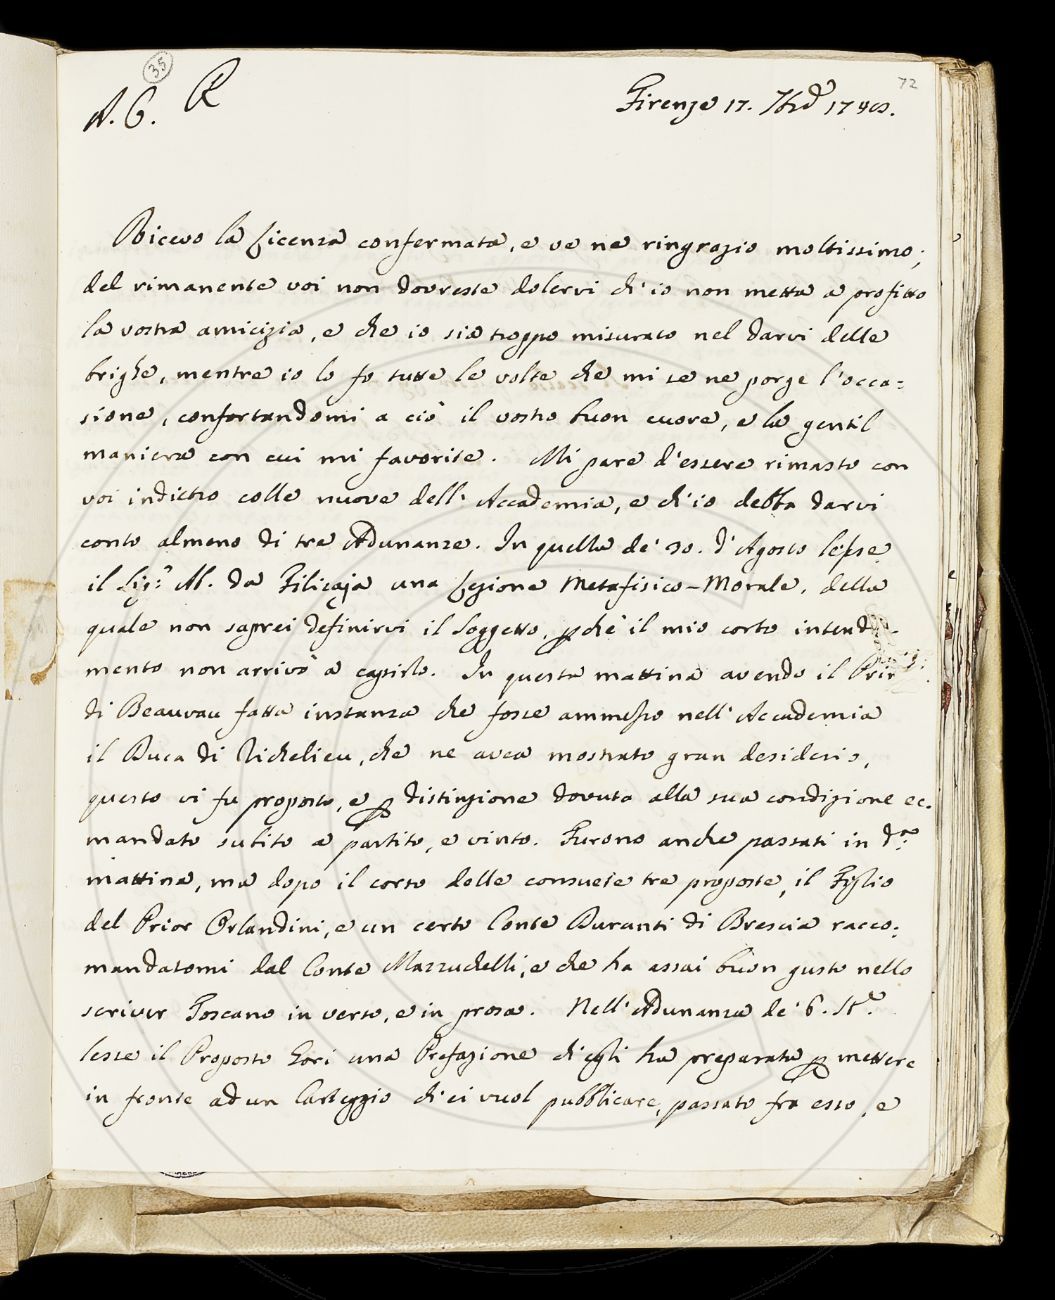 35
72
A. C. R
Firenze 17. 7bre 1740.
Ricevo la Licenza confermata, e ve ne ringrazio moltissimo;
del rimanente voi non dovreste dolervi ch'io non metta a profitto
la vostra amicizia, e che io sia troppo misurato nel darvi delle
brighe, mentre io lo fo tutte le volte che mi se ne porge l'occa=
sione, confortandomi a ciò il vostro buon cuore, e la gentil
maniera con cui mi favorite. Mi pare d'essere rimasto con
voi indietro colle nuove dell'Accademia, e ch'io debba darvi
conto almeno di tre Adunanze. In quella de' 30. d'Agosto lesse
il Sigr. M. da Filicaja una Lezione Metafisico-Morale, della
quale non saprei definirvi il Soggetto, pchè il mio corto intendi-
mento non arrivò a capirlo. In questa mattina avendo il Prin:
di Beauvau fatta instanza che fosse ammesso nell'Accademia
il Duca di Richelieu, che ne avea mostrato gran desiderio,
questo vi fu proposto, e p distinzione dovuta alla sua condizione ec.
mandato subito a partito, e vinto. Furono anche passati in da.
mattina, ma dopo il corso delle consuete tre proposte, il Figlio
del Prior Orlandini, e un certo Conte Duranti di Brescia racco=
mandatomi dal Conte Mazzuchelli, e che ha assai buon gusto nello
scriver Toscano in verso, e in prosa. Nell'Adunanza de' 6. Stte.
lesse il Proposto Gori una Prefazione ch'egli ha preparata p mettere
in fronte ad un Carteggio ch'ei vuol pubblicare, passato fra esso, e